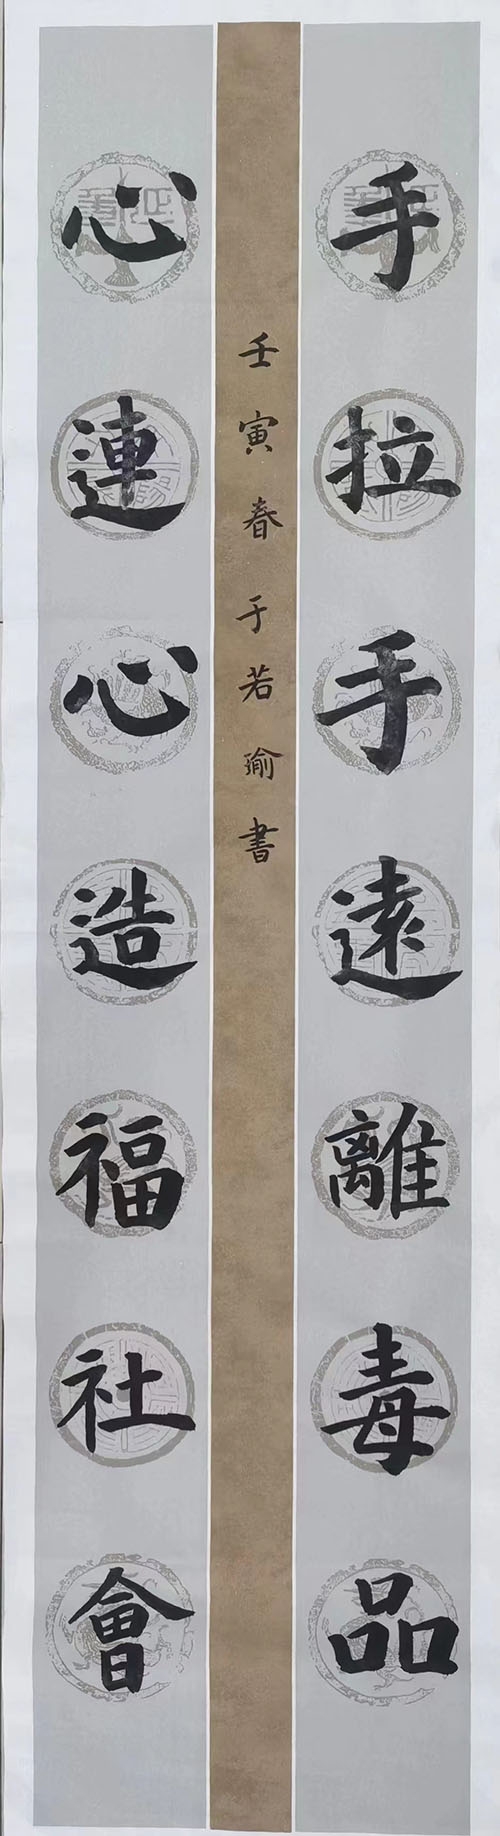 手拉手遠離毒品
壬寅春于若瑜書
心連心造福社會